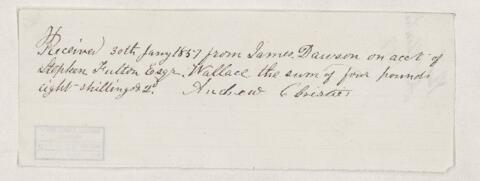 Received 30th Jany 1857 from James Dawson on acct of
Stephen Fulton Esqr. Wallace the sum of four pounds
eight shillings & 2d. Andrew Christie